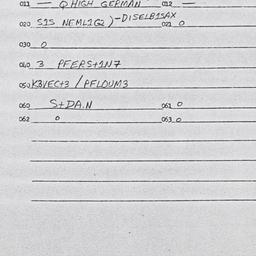 011 — Q HIGH GERMAN 012 —
020 S1S NEML1G2 )-DISELB1SAX 021 0
030 0
040 3 PFERS+1N7
050 K3VEC+3 / PFLOUM3
060 S+DA.N 061 0
062 0 063 0